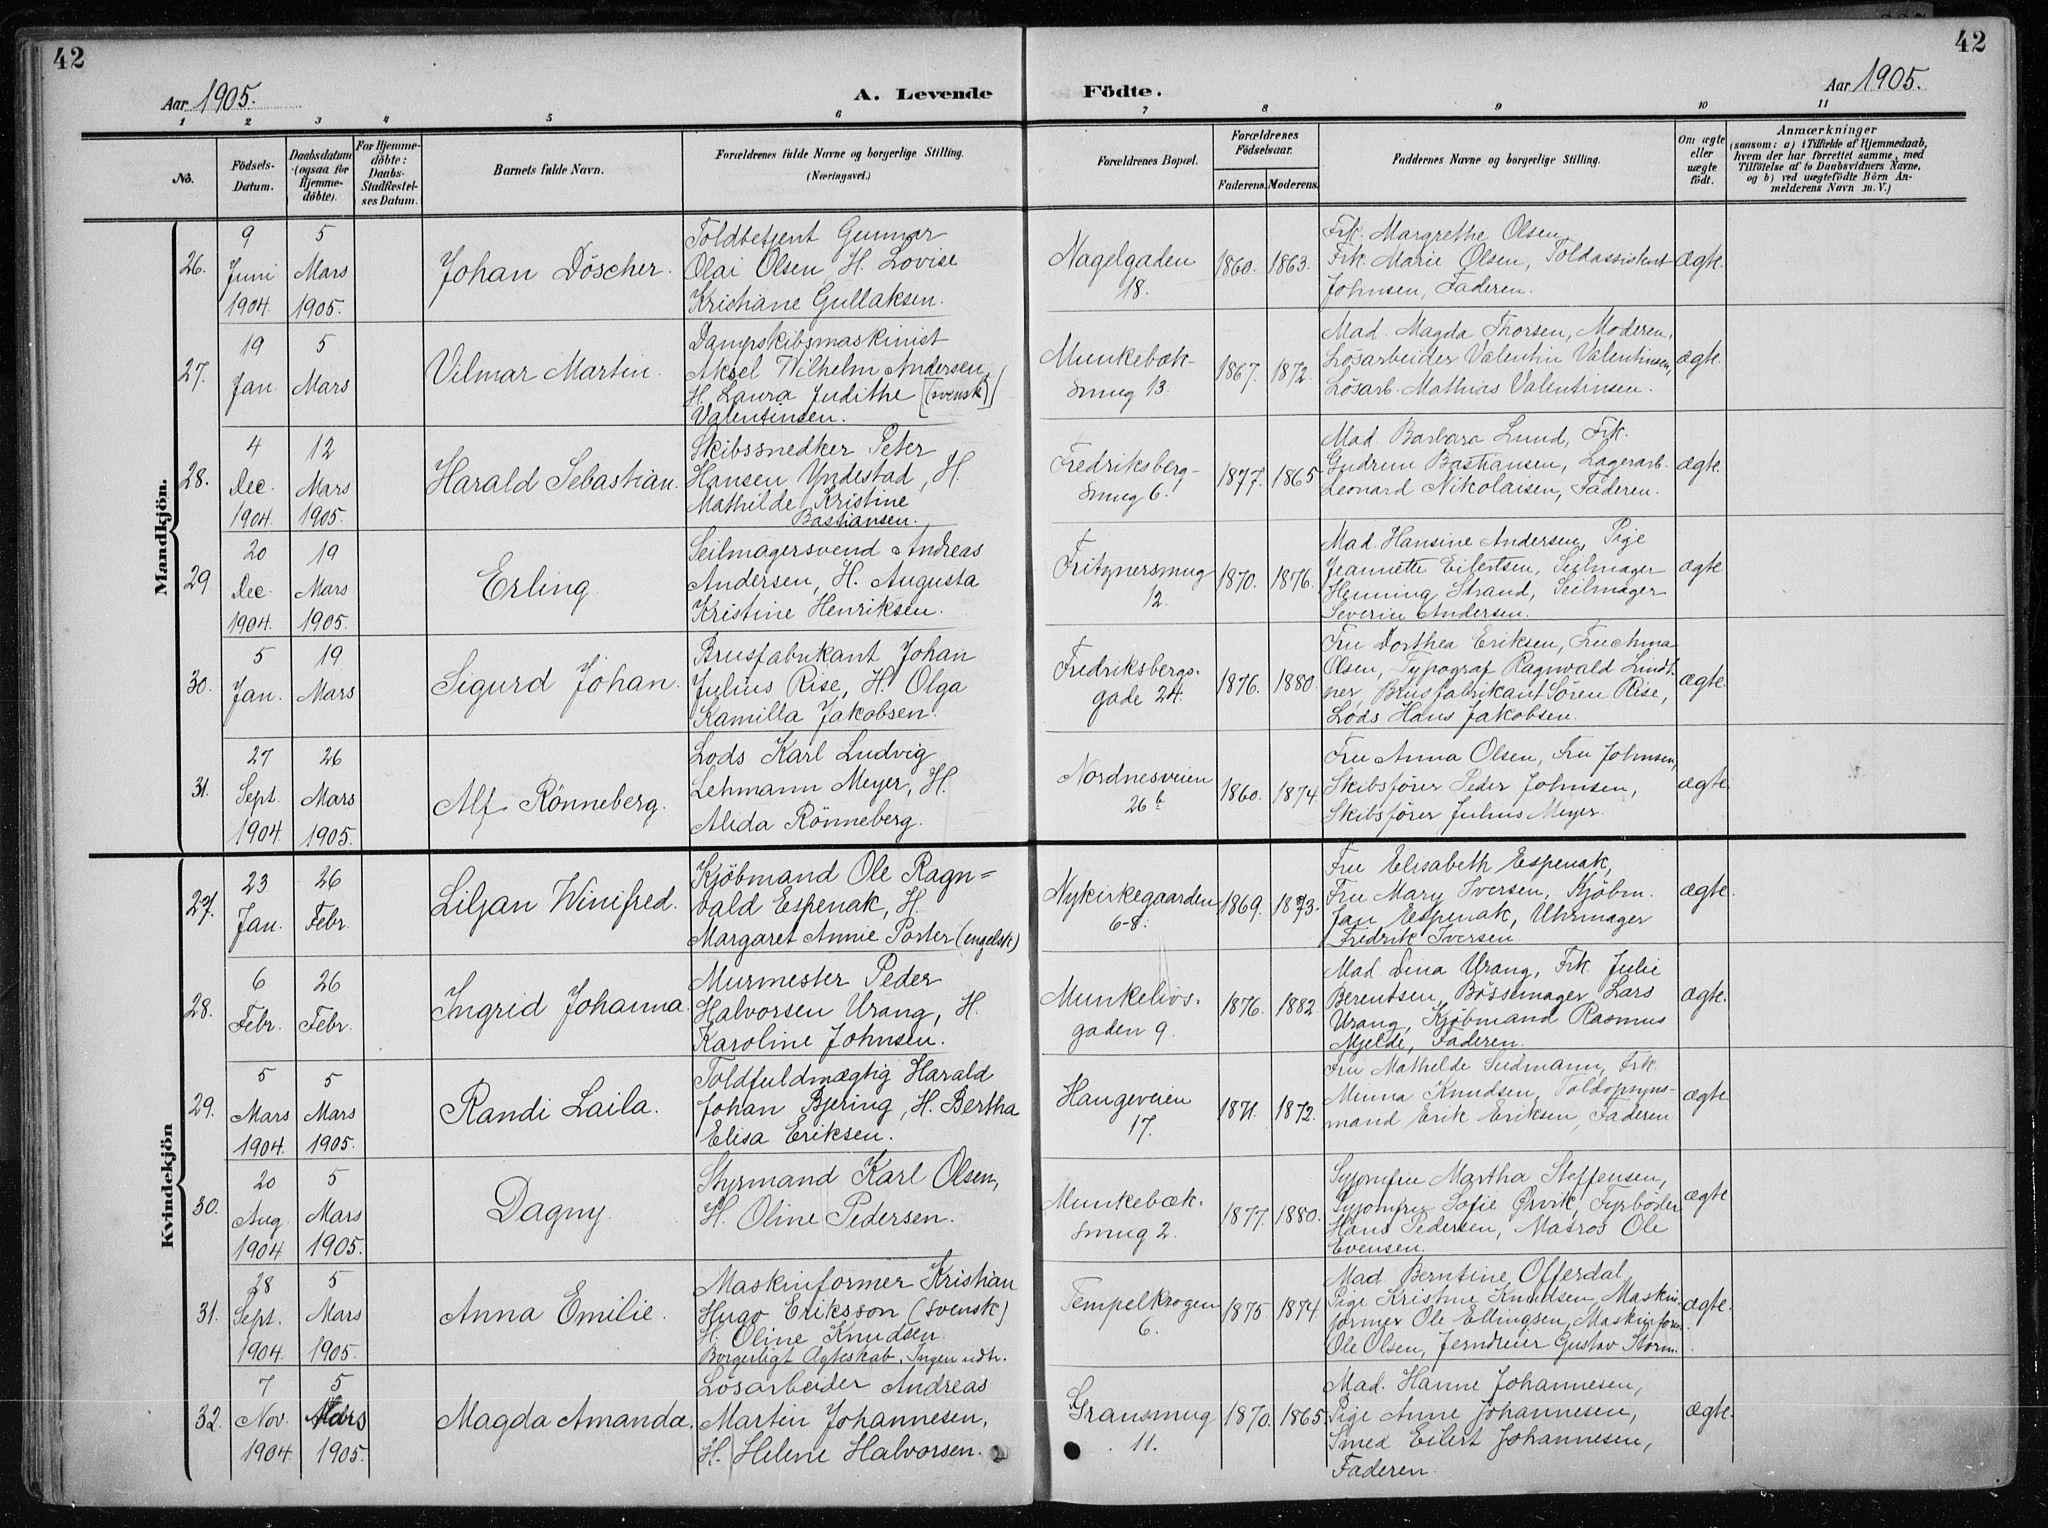 42
Aar 1905.
A. Levende
Födte.
Aar 1905.
42
1 2 3 4 5 6 7 8 9 10 11
No.
Födsels-
Datum.
Daabsdatum
(ogsaa for
Hjemme-
döbte).
For Hjemme-
döbte:
Daabs-
Stadfæstel-
ses Datum.
Barnets fulde Navn.
Forældrenes fulde Navne og borgerlige Stilling.
(Næringsvei.)
Forældrenes Bopæl.
Forældrenes
Födselsaar.
Faderens. Moderens.
Faddernes Navne og borgerlige Stilling.
Om ægte
eller
uægte
födt.
Anmærkninger
(saasom: a) i Tilfælde af Hjemmedaab,
hvem der har forrettet samme, med
Tilföielse af to Daabsvidners Navne,
og b) ved uægtefödte Börn An-
melderens Navn m. V.)
Mandkjön.
26.
9
Juni
1904.
5
Mars
1905.
Johan Döscher.
Toldbetjent Gunnar
Olai Olsen, H. Lovise
Kristiane Gullaksen.
Nagelgaden
18.
1860. 1863.
Frk. Margrethe Olsen,
Frk. Marie Olsen, Toldassistent
Johnsen, Faderen.
ægte.
27.
19
Jan.
5
Mars
Vilmar Martin.
Dampskibsmaskinist
Aksel Wilhelm Andersen,
H. Laura Judithe [(svensk)]
Valentinsen.
Munkebæk-
smug 13.
1867. 1872.
Mad. Magda Thorsen, Moderen,
Løsarbeider Valentin Valentinsen,
Løsarb. Mathias Valentinsen.
ægte.
28.
4
Dec.
1904.
12
Mars
1905.
Harald Sebastian.
Skibssnedker Peter
Hansen Yndestad, H.
Mathilde Kristine
Bastiansen.
Fredriksberg-
smug 6.
1877. 1865
Mad. Barbara Lund, Frk.
Gudrun Bastiansen, Lagerarb.
Leonard Nikolaisen, Faderen.
ægte.
29.
20
Dec.
1904.
19
Mars
1905.
Erling.
Seilmagersvend Andreas
Andersen, H. Augusta
Kristine Henriksen.
Fritznersmug
12.
1870. 1876.
Mad. Hansine Andersen, Pige
Jeannette Eilertsen, Seilmager
Henning Strand, Seilmager
Severin Andersen.
ægte
30.
5
Jan.
19
Mars
Sigurd Johan.
Brusfabrikant Johan
Julius Rise, H. Olga
Kamilla Jakobsen.
Fredriksbergs-
gade 24.
1876. 1880.
Fru Dorthea Eriksen, Fru Anna
Olsen, Typograf Ragnvald Lindt-
ner, Brusfabrikant Søren Rise,
Lods Hans Jakobsen.
ægte.
31.
27
Sept.
1904
26
Mars
1905.
Alf Rönneberg.
Lods Karl Ludvig
Lehmann Meyer, H.
Alida Rönneberg.
Nordnesveien
26b
1860. 1874.
Fru Anna Olsen, Fru Johnsen,
Skibsfører Peder Johnsen,
Skibsfører Julius Meyer.
ægte.
Kvindekjön
27.
23
Jan.
26
Febr.
Liljan Winifred.
Kjöbmand Ole Ragn=
vald Espenak, H.
Margaret Annie Porter (engelsk)
Nykirkegaarden
6-8.
1869. 1873.
Fru Elisabeth Espenak,
Fru Mary Iversen, Kjöbm.
Jan Espenak, Uhrmager
Fredrik Iversen.
ægte.
28.
6
Febr.
26
Febr.
Ingrid Johanna.
Murmester Peder
Halvorsen Urang, H.
Karoline Johnsen.
Munkelivs-
gaden 9.
1876. 1882.
Mad. Lina Urang, Frk. Julie
Berentsen, Bössemager Lars
Urang, Kjöbmand Rasmus
Mjelde, Faderen.
ægte.
29.
5
Mars
1904.
5
Mars
1905.
Randi Laila.
Toldfuldmægtig Harald
Johan Bjering, H. Bertha
Elisa Eriksen.
Haugeveien
17.
1871. 1872.
Fru Mathilde Sudmann, Frk.
Minna Knudsen, Toldopsyns-
mand Erik Eriksen, Faderen
ægte.
30.
20
Aug.
1904
5
Mars
1905.
Dagny.
Styrmand Karl Olsen,
H. Oline Pedersen.
Munkebæk-
smug 2.
1877. 1880.
Syjomfru Martha Steffensen,
Syjomfru Sofie Ørvik, Fyrböder
Hans Pedersen, Matros Ole
Evensen.
ægte
31.
28
Sept.
1904.
5
Mars
1905.
Anna Emilie.
Maskinformer Kristian
Hugo Eriksson (svensk)
H. Oline Knudsen.
Borgerligt Ægteskab. Ingen udtr.
Tempelkrogen
6.
1875 1874.
Mad. Berntine Offerdal,
Pige Kristine Knudsen, Maskin-
former Ole Ellingsen, Maskinform.
Ole Olsen, Jerndreier Gustav Storm.
ægte.
32.
7
Nov.
1904.
5
Mars
1905.
Magda Amanda.
Løsarbeider Andreas
Martin Johannesen,
H. Helene Halvorsen.
Gransmug
11.
1870. 1865
Mad. Hanne Johannesen,
Pige Anne Johannesen,
Smed Eilert Johannesen,
Faderen.
ægte.